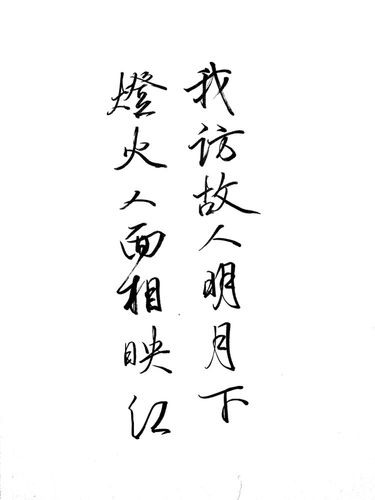 我访故人明月下
燈火人面相映红